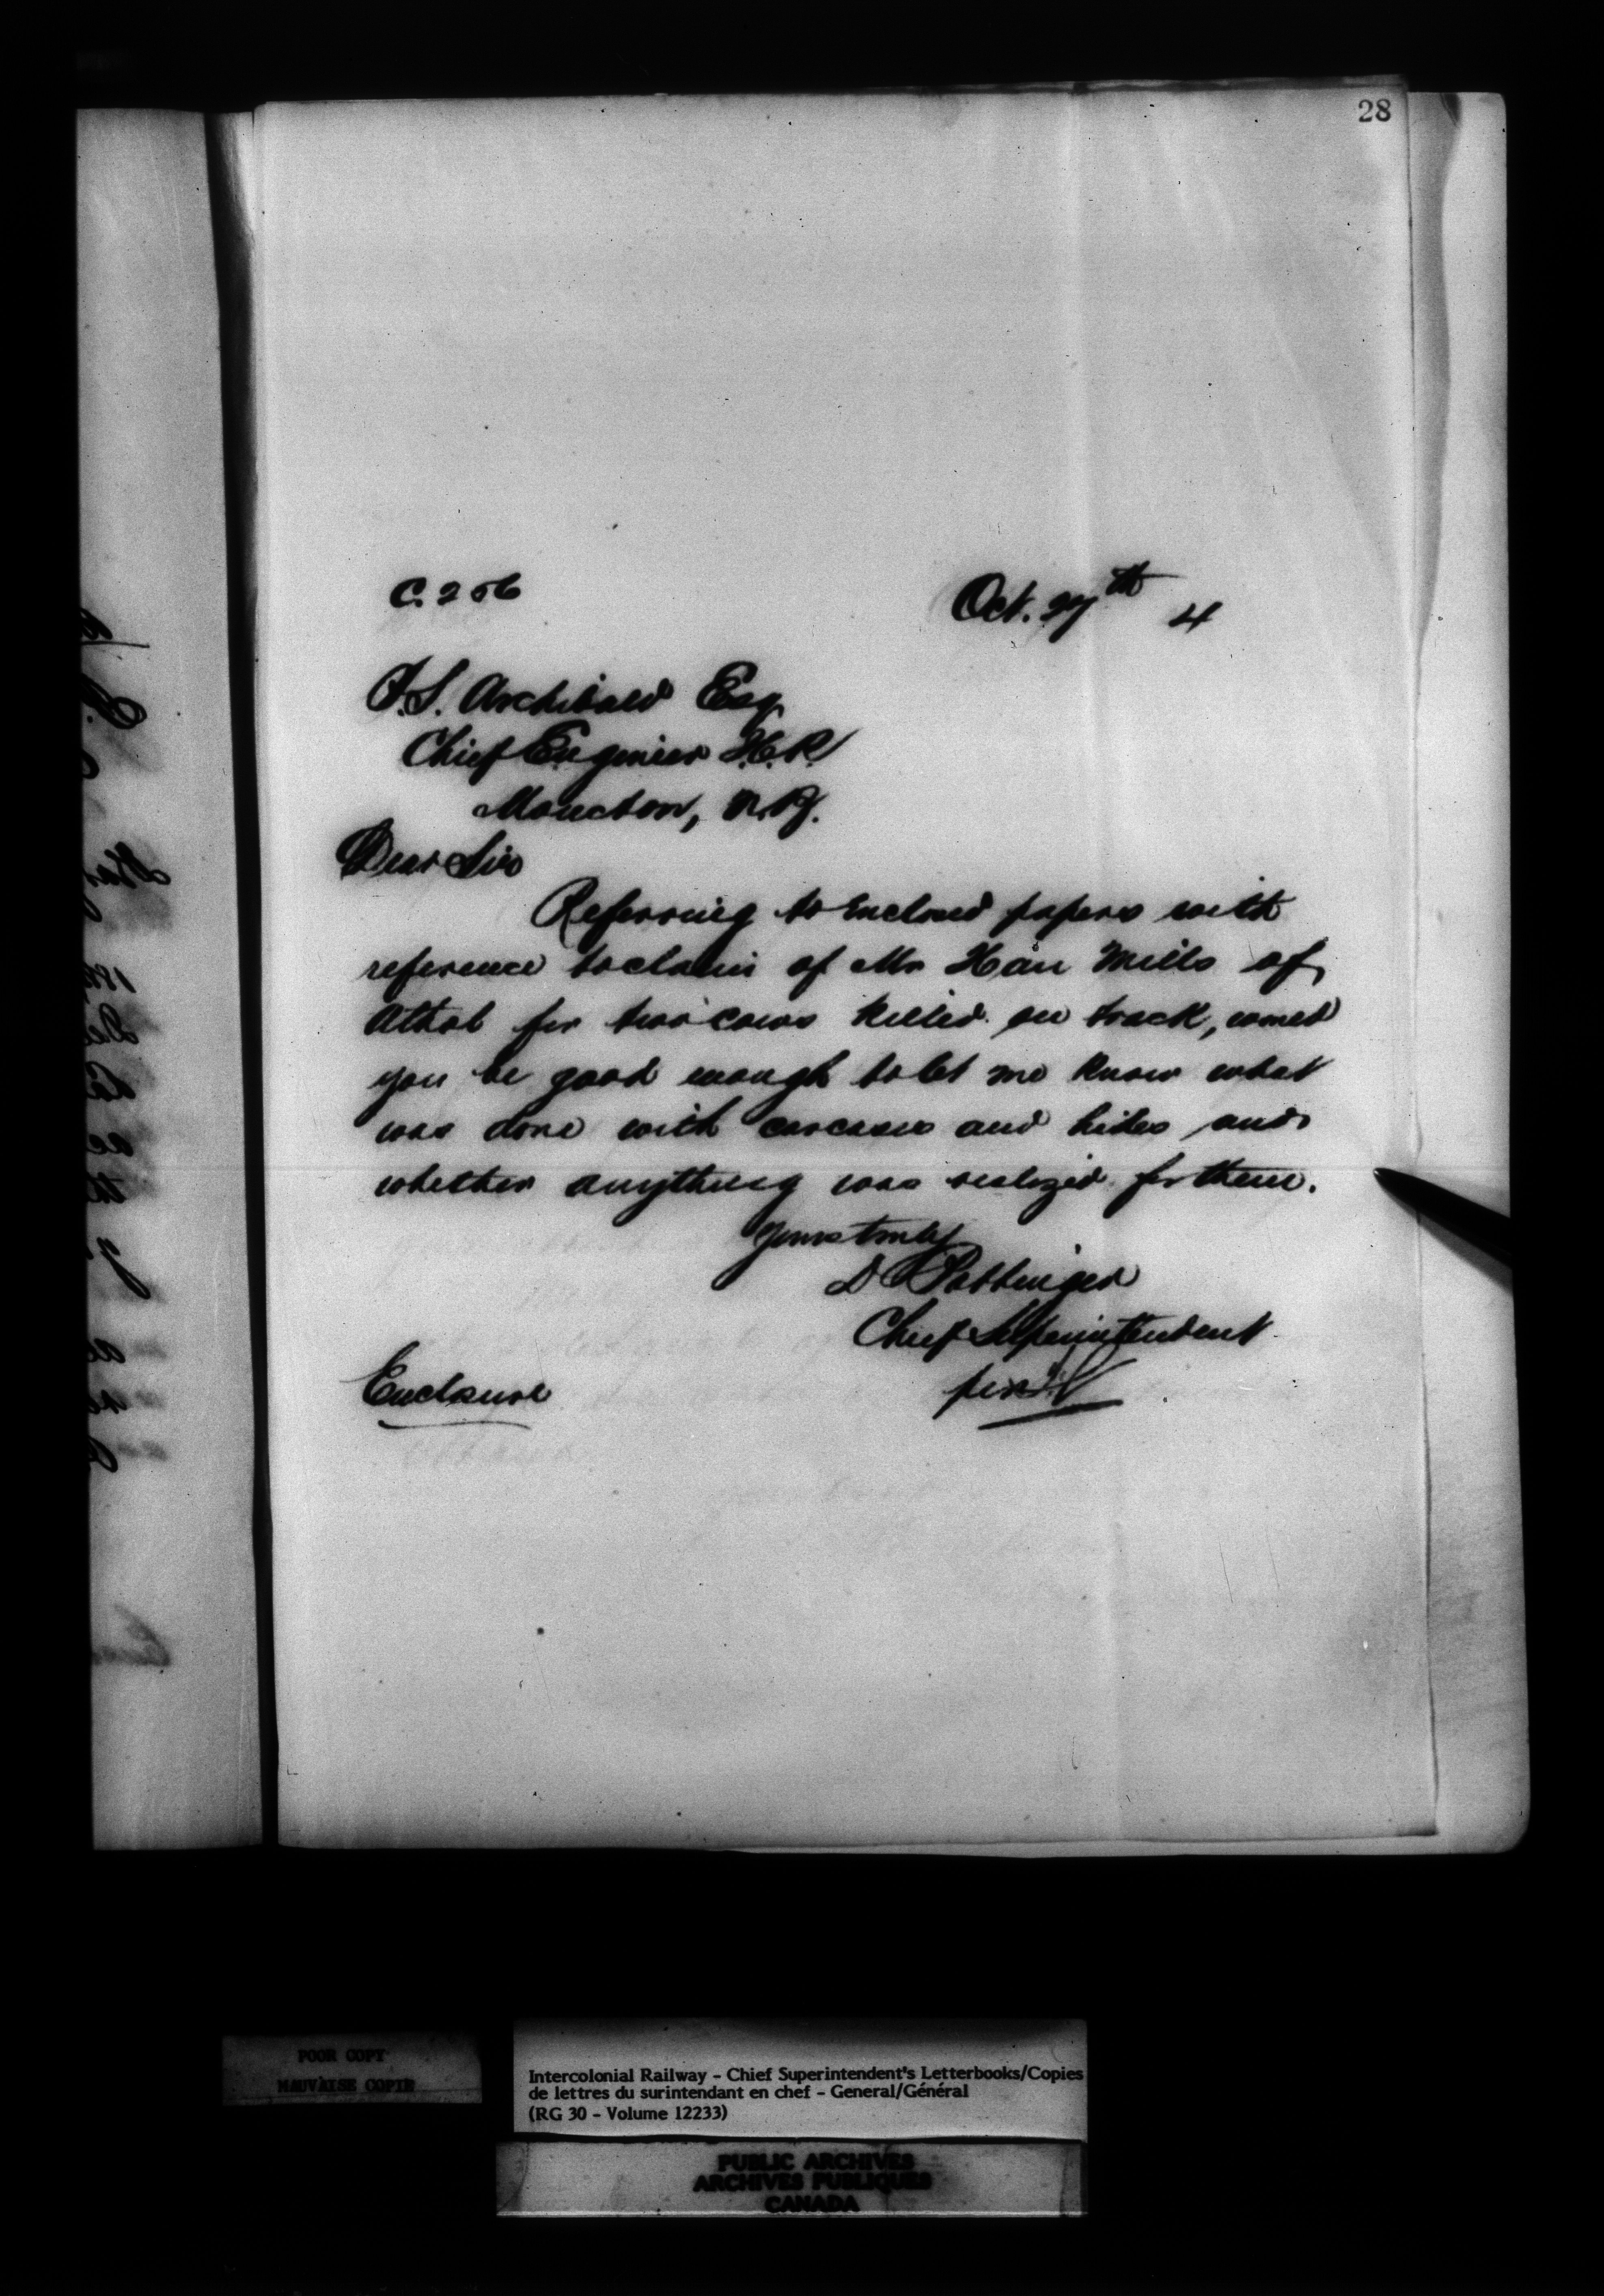 28
C. 256
Oct. 27th 4
P.S. Archibald Esq
Chief Engineer I.C.R.
Moncton, N.B.
Dear Sir
Referring to enclosed papers with
reference to claim of Mr Mills of
Athol for two cows killed on track, would
you be good enough to let me know what
was done with carcases and hides and
whether anything was realized for them.
Yours truly
D Pottinger
Chief Superintendent
per
Enclosure
POOR COPY
MAUVAISE COPIE
Intercolonial Railway - Chief Superintendent's Letterbooks/Copies
de lettres du surintendant en chef - General/Général
(RG 30 - Volume 12233)
PUBLIC ARCHIVES
ARCHIVES PUBLIQUES
CANADA